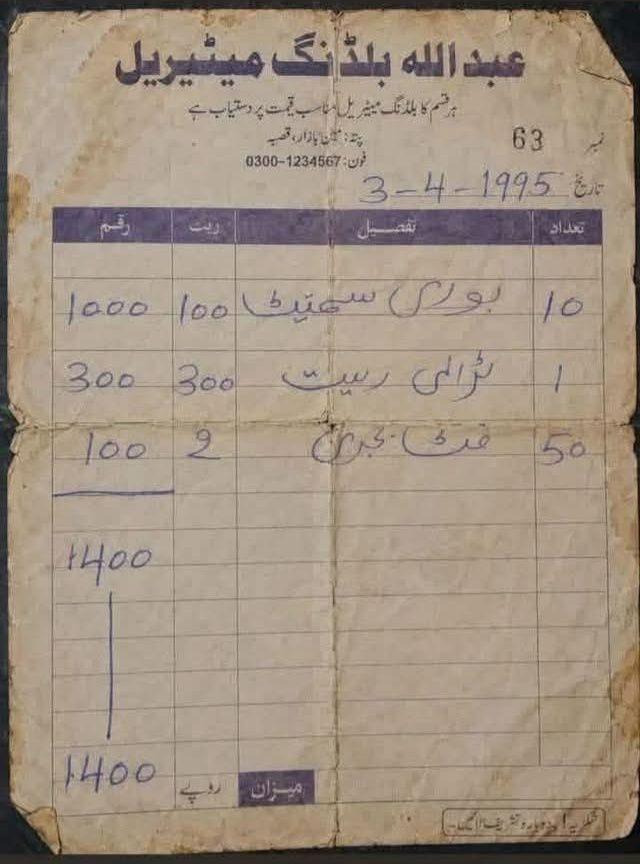 عبداللہ بلڈنگ میٹیریل
ہر قسم کا بلڈنگ میٹیریل مناسب قیمت پر دستیاب ہے
پتہ: مین بازار، قصبہ
فون: 0300-1234567
نمبر 63
تاریخ 3-4-1995
تعداد تفصیل ریٹ رقم
10 بوری سمینٹ 100 1000
1 ٹرالی ریت 300 300
50 فٹ بجری 2 100
1400
میزان روپے 1400
شکریہ! دوبارہ تشریف لائیں۔